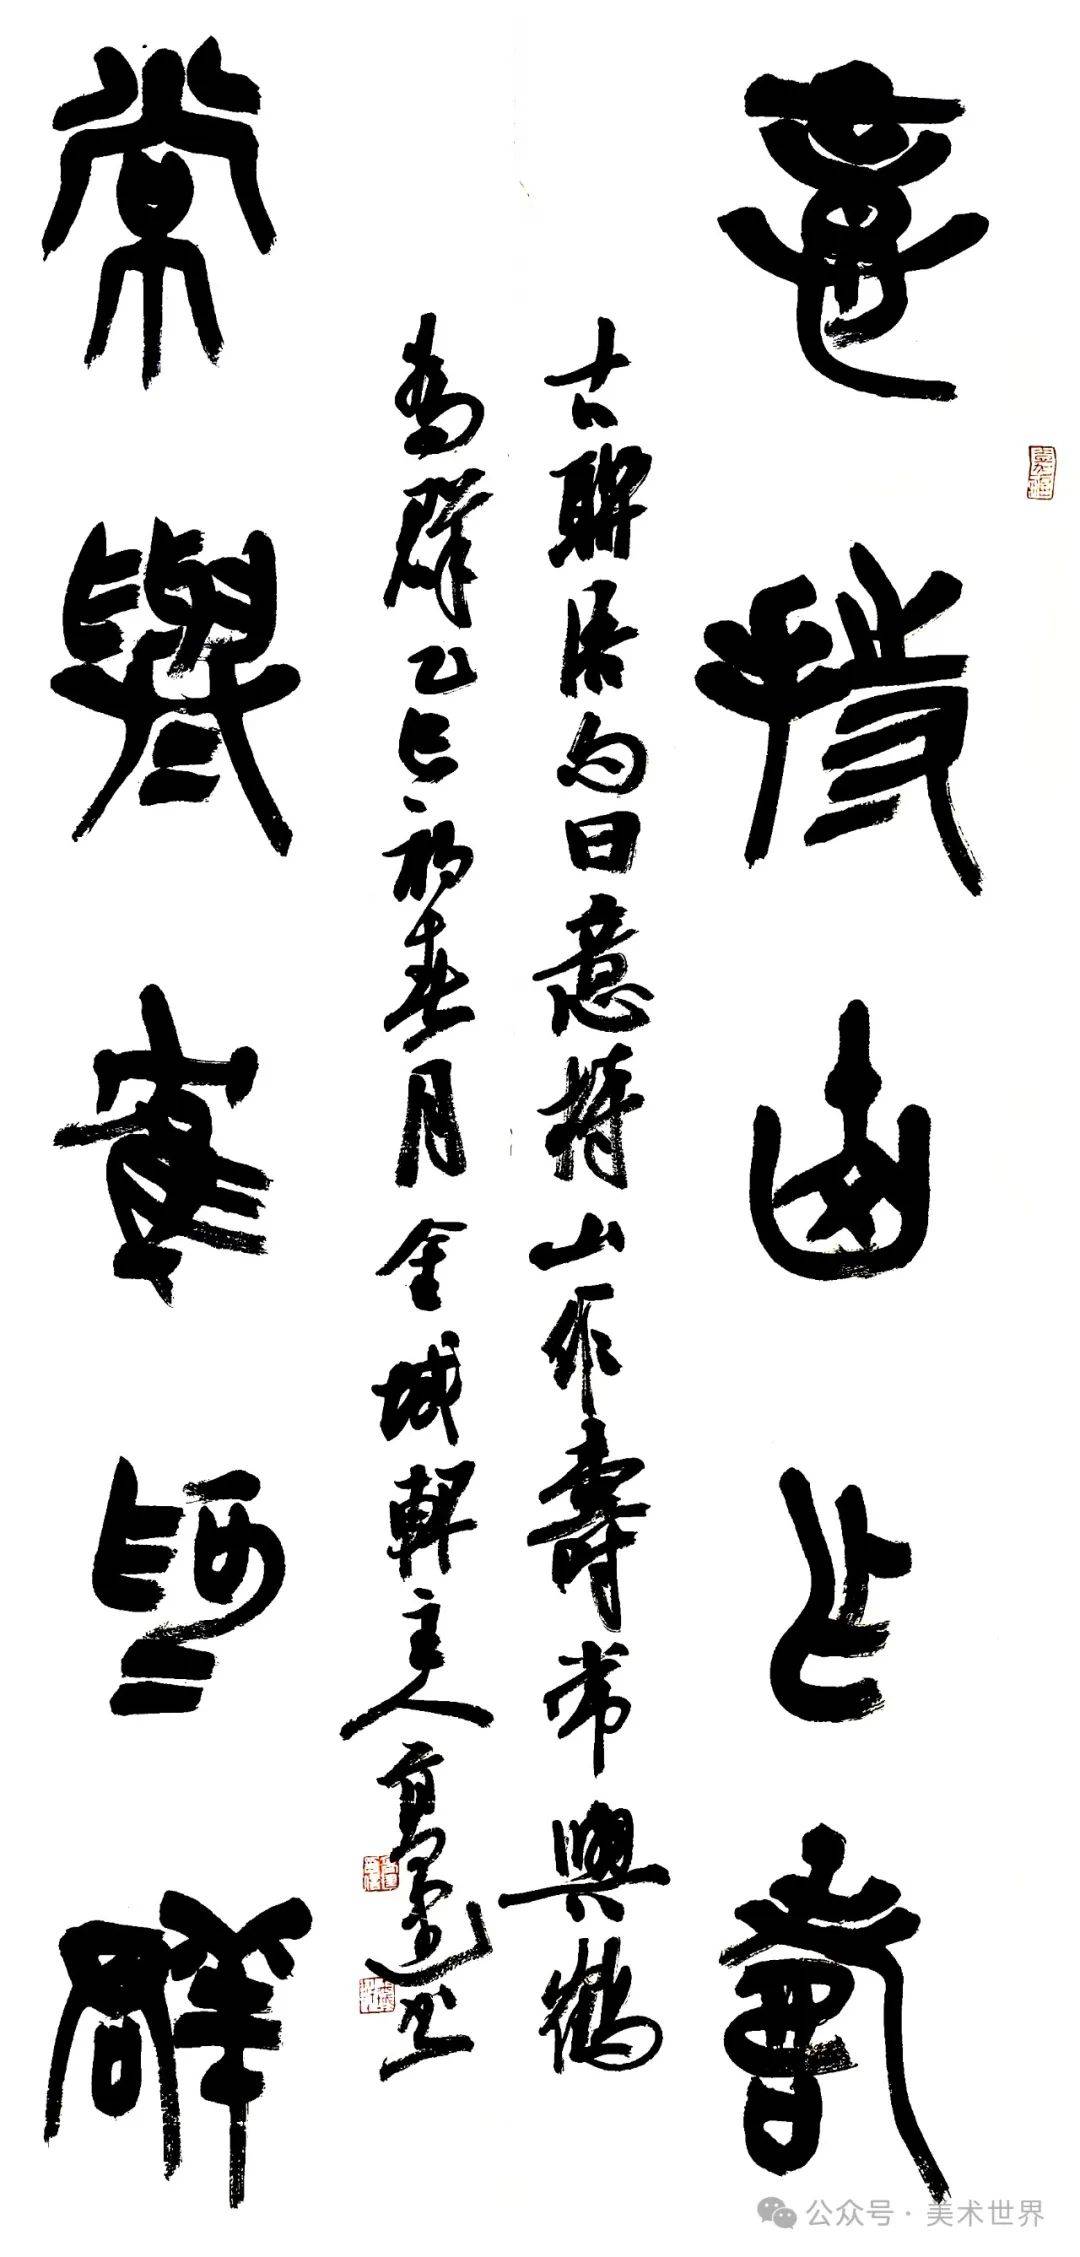 意持山作壽
古聯語句曰意持山作壽常與鶴
為群乙巳初春月金城軒主人書
常與鶴為群
公众号 · 美术世界